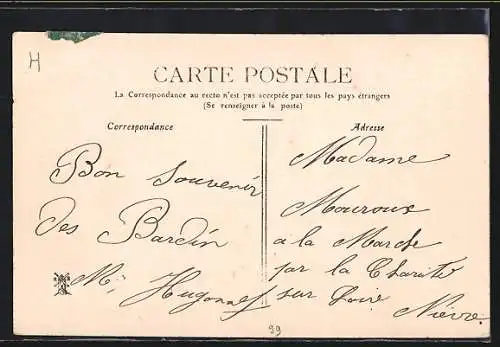 H
CARTE POSTALE
La Correspondance au recto n'est pas acceptée par tous les pays étrangers
(Se renseigner à la poste)
Correspondance
Adresse
Bon Souvenir
des Bardin
Mi Hugonnet
Madame
Mouroux
a la Marche
par la Charité
sur Loire
Nièvre.
99